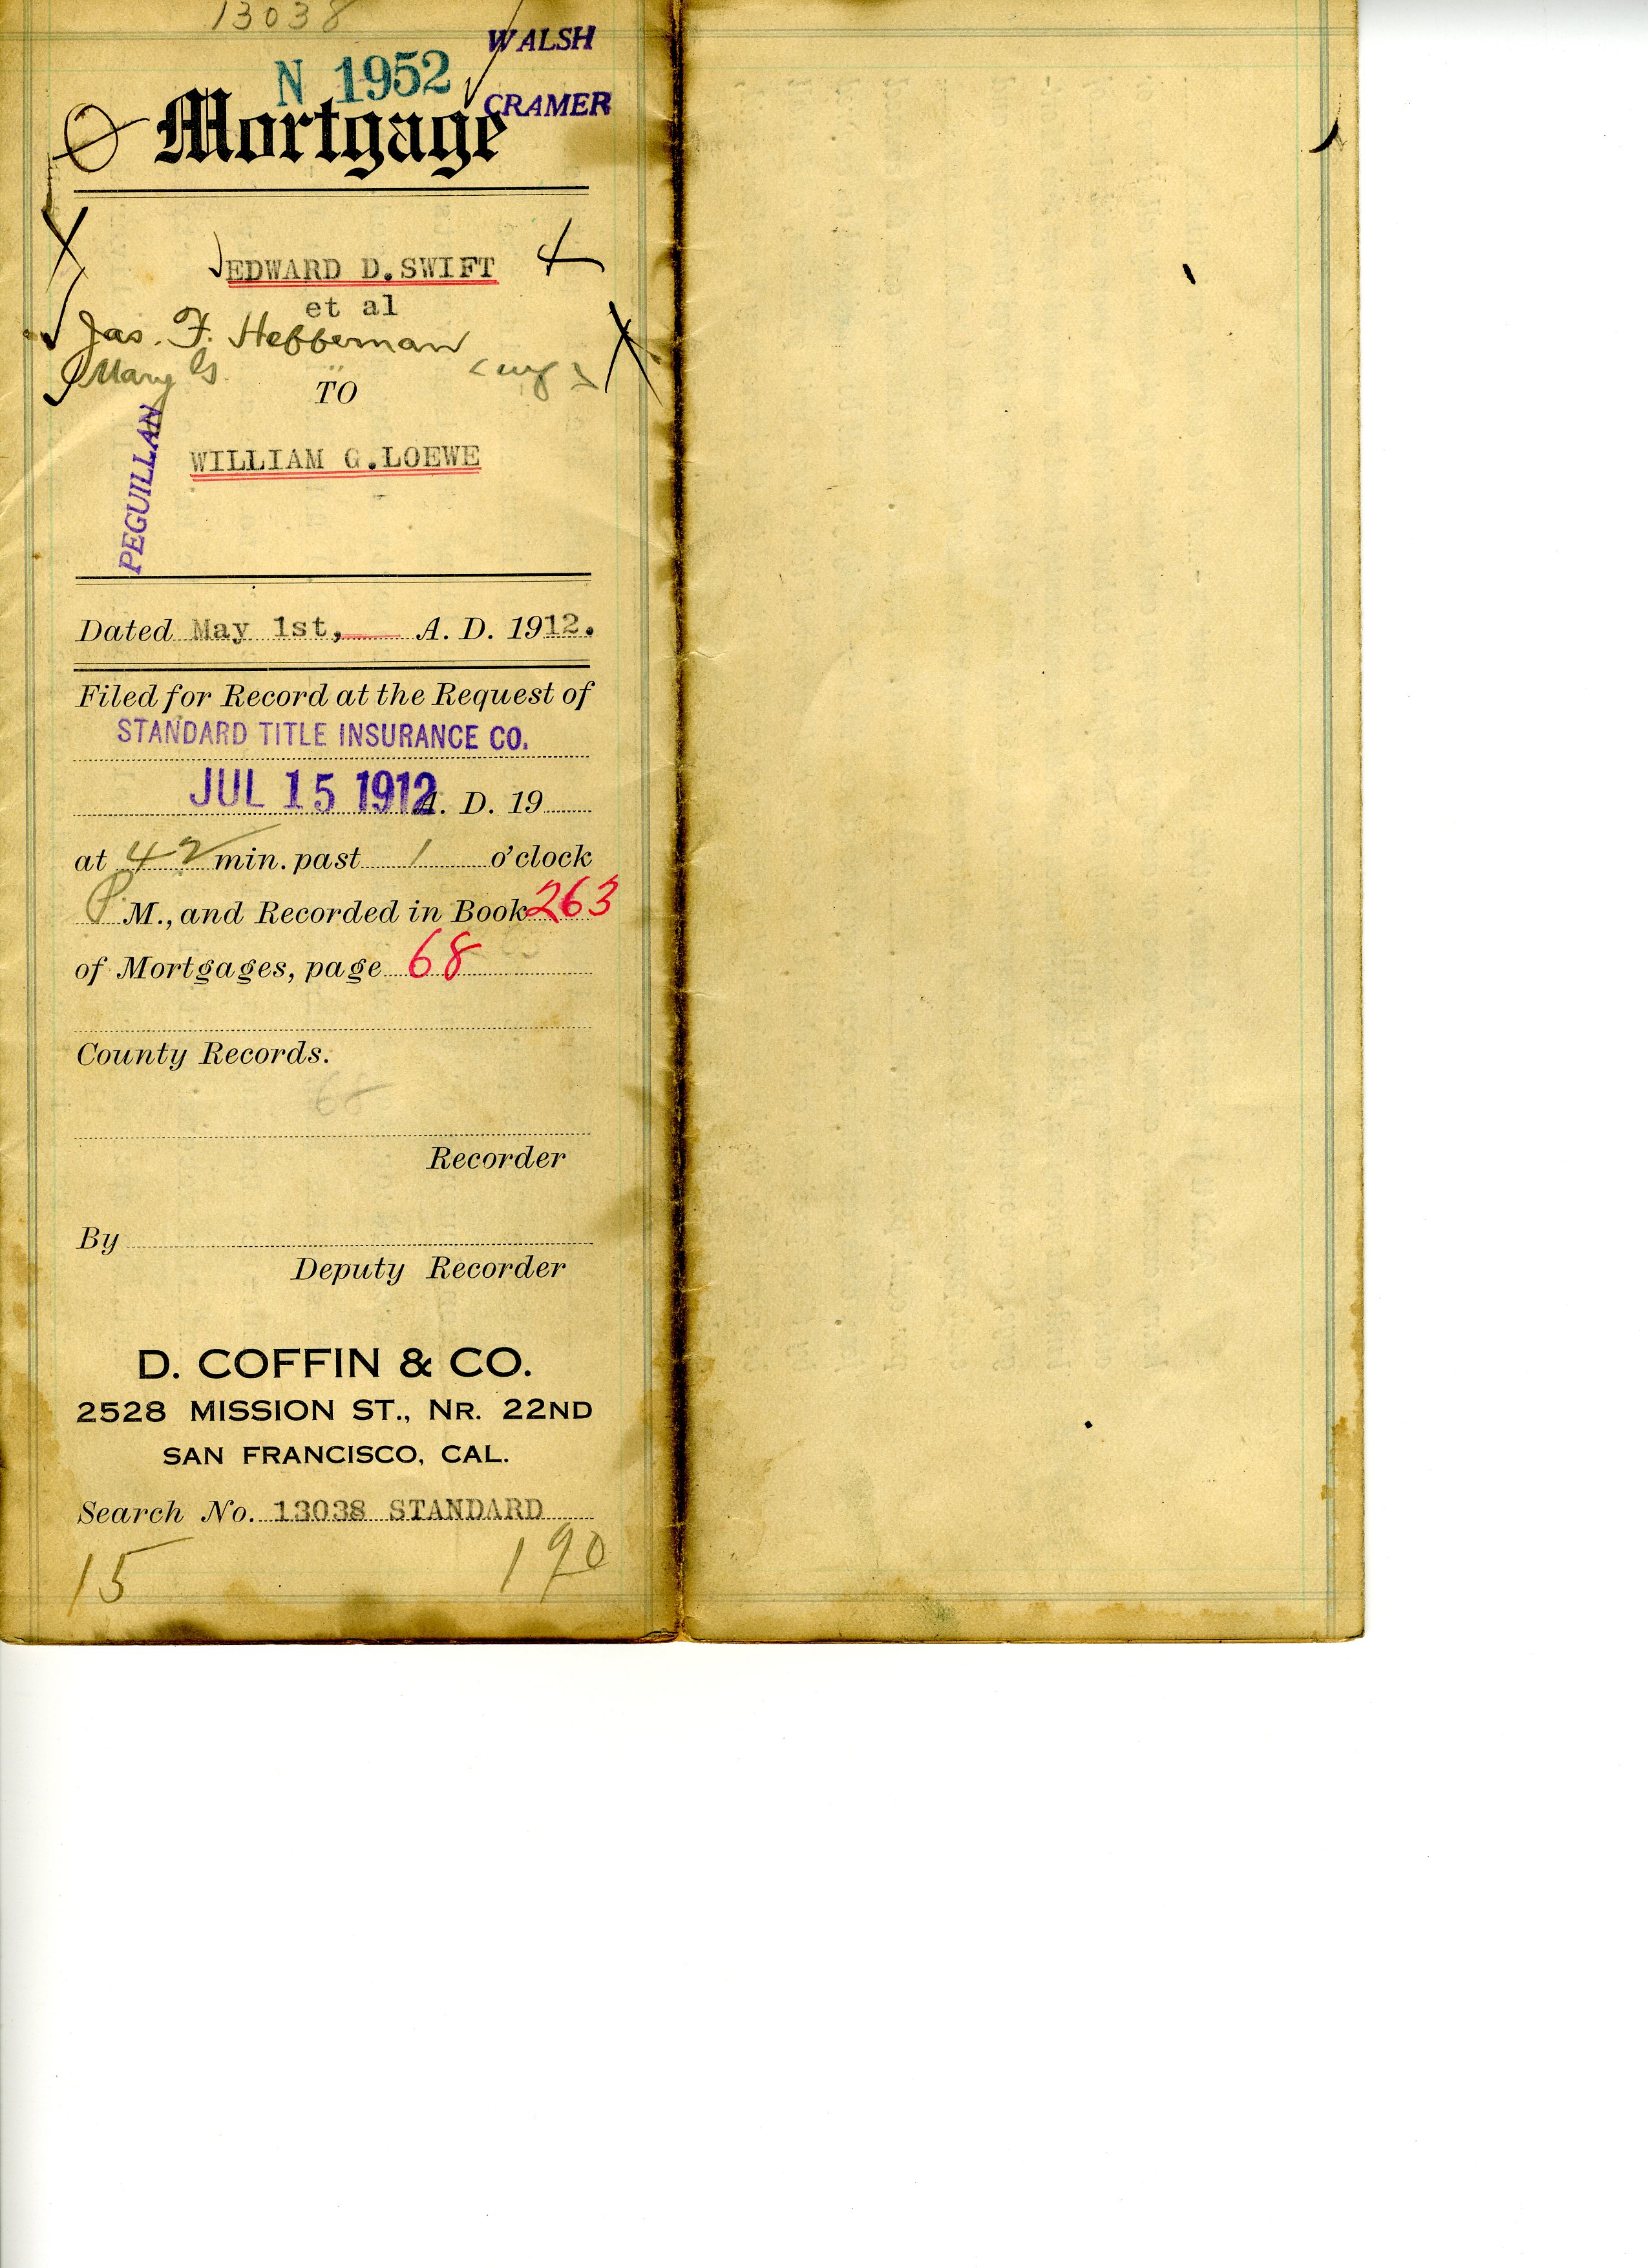 13038
WALSH
N 1952
CRAMER
Mortgage
EDWARD D. SWIFT
et al
Jas. F. Heffernan
Mary G. "
TO
PEGUILLAN
WILLIAM G. LOEWE
Dated May 1st, A. D. 1912.
Filed for Record at the Request of
STANDARD TITLE INSURANCE CO.
JUL 15 1912 A. D. 19
at 42 min. past 1 o'clock
P. M., and Recorded in Book 263
of Mortgages, page 68
County Records.
68
Recorder
By
Deputy Recorder
D. COFFIN & CO.
2528 MISSION ST., NR. 22ND
SAN FRANCISCO, CAL.
Search No. 13038 STANDARD
15 190